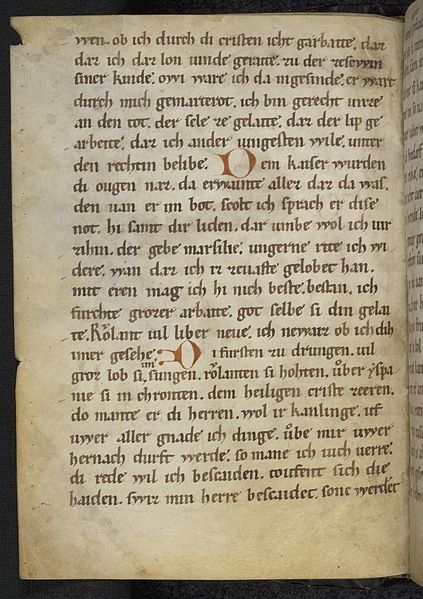 wen. ob ich durch di cristen icht garbatte. daz
daz ich daz lon uinde geraite. zu der zesewin
siner kinde. owi ware ich da ingesinde. er wart
durch mich gemarterot. ich bin gerecht unze
an den tot. der sele ze gelaitte. daz der lip ge
arbeite. daz ich ander iungesten wile. unter
den rechtin belibe. Dem kaiser wurden
di ougen naz. da erwainte allez daz da was.
den uan er im bot. scolt ich sprach er dise
not. hi samt dir liden. daz inbe wol ich uir
zihin. der gebe marsilie. ungerne rite ich wi
dere. wan daz ich iz zeuaste gelobet han.
mit eren mag ich hi nich bestan. ich
furchte grozer arbaite. got selbe si din gelai
te. Rolant uil liber neue. ich newaiz ob ich dih
imer gesehe. Di fursten zu drungen. uil
groz lob si im sungen. rolanten si hohten. uber yspa
nie si in chronten. dem heiligen criste zeeren.
do mante er di herren. wol ir karlinge. uf
uwer aller gnade ich dinge. ube mir uwer
hernach durft werde. so mane ich iuch uerre.
di rede wil ich bescaiden. toufent sich die
haiden. swiz min herre bescaidet. sone werdet